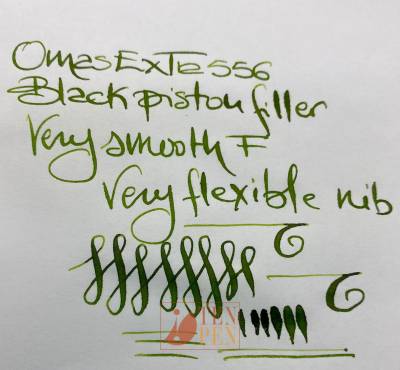 Omas Extra 556
Black piston filler
Very smooth F
Very flexible nib
TEN
PEN